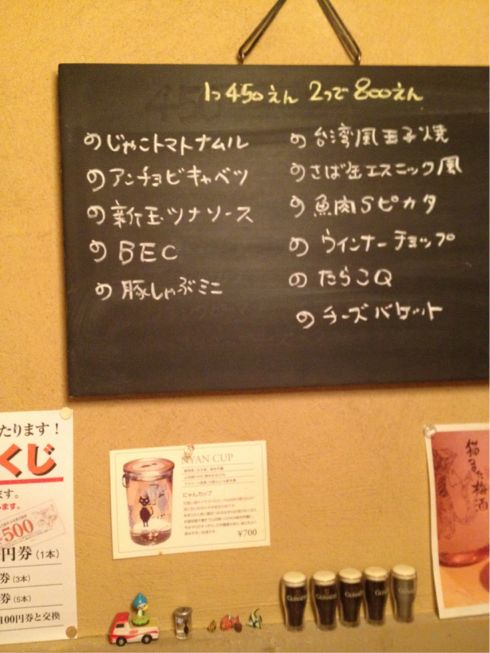 1つ450えん 2つで800えん
のじゃこトマトナムル
のアンチョビキャベツ
の新玉ツナソース
のBEC
の豚しゃぶミニ
の台湾風玉子焼
のさば缶エスニック風
の魚肉Sピカタ
のウインナーチョップ
のたらこQ
のチーズバケット
たります!
くじ
ます。
います。
500
円券(1本)
券(3本)
券(5本)
100円券と交換
NYAN CUP
にゃんカップ
¥700
猫また梅酒